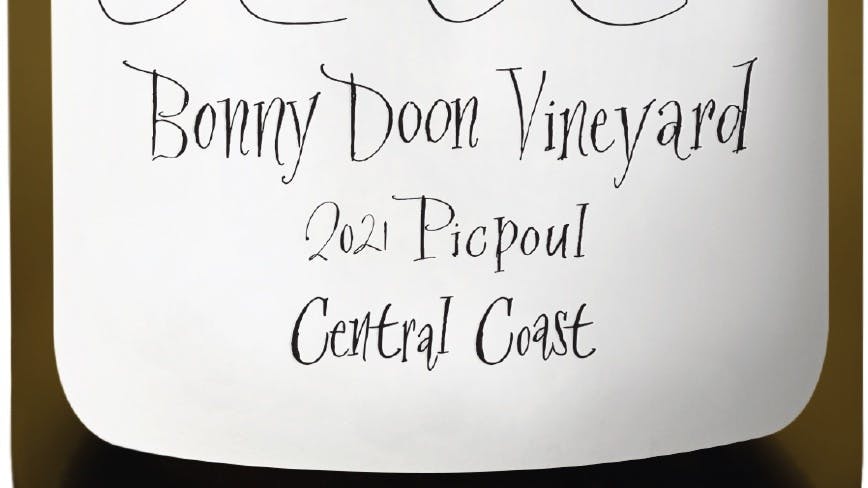 Bonny Doon Vineyard
2021 Picpoul
Central Coast